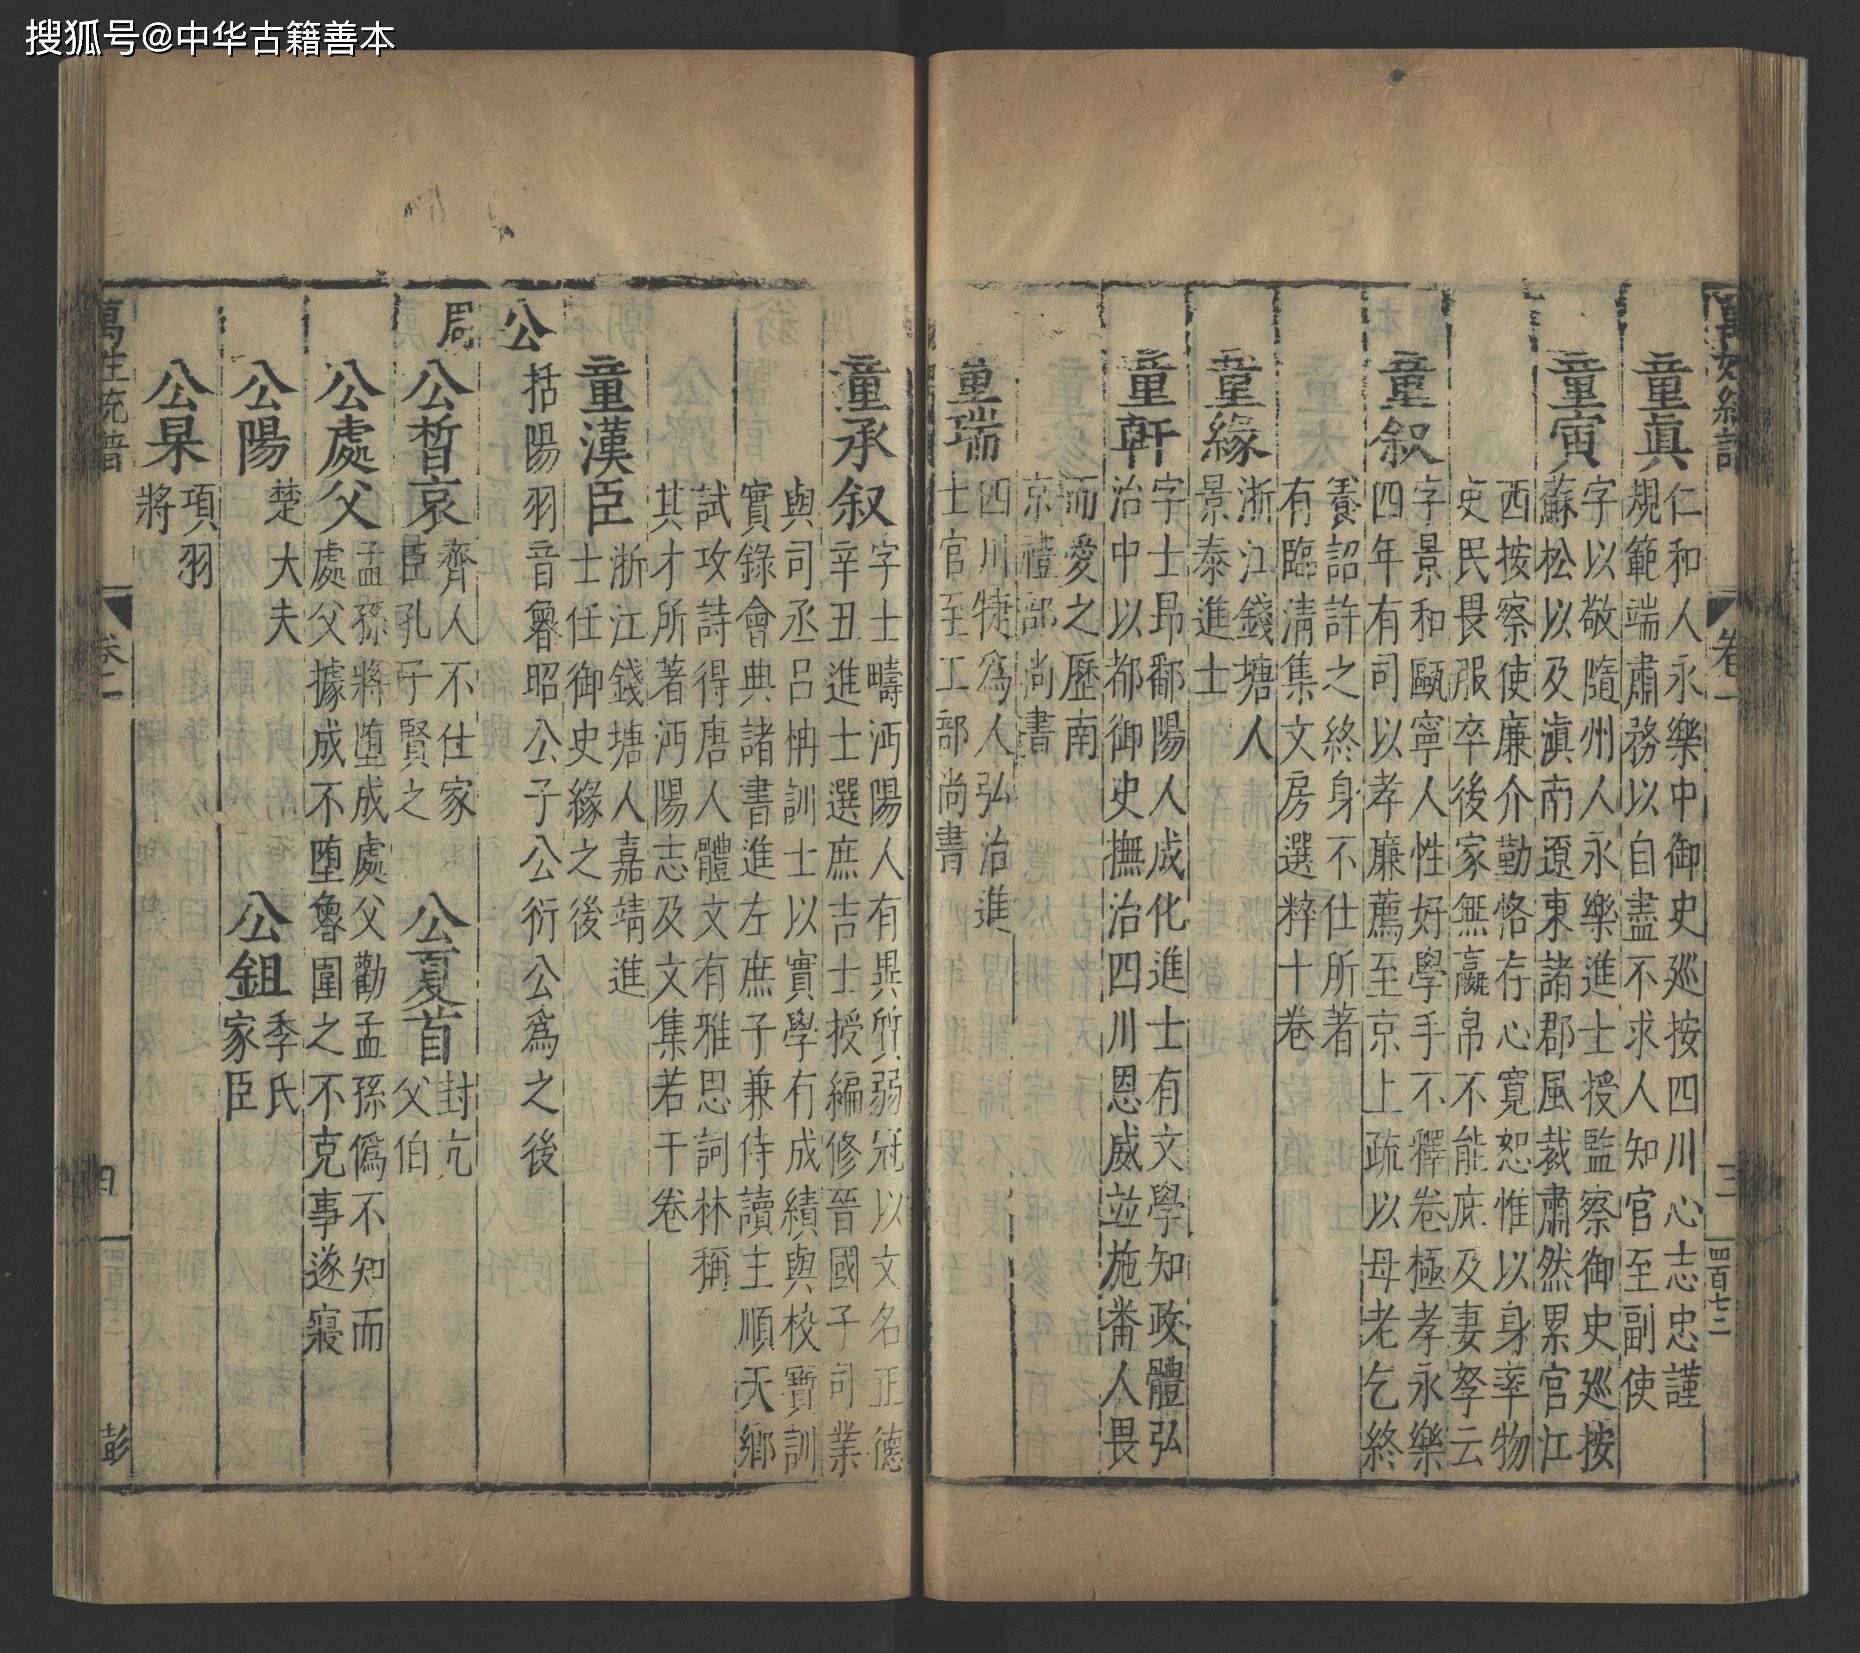 搜狐号@中华古籍善本
萬姓統譜
卷二
三
四百七二
童眞
仁和人永樂中御史巡按四川心志忠謹
規範端肅務以自盡不求人知官至副使
童寅
字以敬隨州人永樂進士授監察御史巡按
蘇松以及滇南遼東諸郡風裁肅然累官江
西按察使廉介勤恪存心寛恕惟以身率物
吏民畏服卒後家無嬴帛不能庇及妻孥云
童叙
字景和甌寧人性好學手不釋卷極孝永樂
四年有司以孝廉薦至京上疏以母老乞終
養詔許之終身不仕所著
有臨清集文房選粹十卷
童緣
浙江錢塘人
景泰進士
童軒
字士昂鄱陽人成化進士有文學知政體弘
治中以都御史撫治四川恩威並施畨人畏
而愛之歷南
京禮部尚書
童瑞
四川犍為人弘治進
士官至工部尚書
童承叙
字士疇沔陽人有異質弱冠以文名正德
辛丑進士選庶吉士授編修晉國子司業
與司丞呂柟訓士以實學有成績與校寳訓
實錄會典諸書進左庶子兼侍讀主順天鄉
試攻詩得唐人體文有雅思詞林稱
其才所著沔陽志及文集若干卷
童漢臣
浙江錢塘人嘉靖進
士任御史緣之後
公
括陽羽音魯昭公子公衍公爲之後
周
公晳哀
齊人不仕家
臣孔子賢之
公夏首
封亢
父伯
公處父
孟孫將墮成處父勸孟孫僞不知而
處父據成不墮魯圍之不克事遂寢
公陽
楚大夫
公鉏
季氏
家臣
公杲
項羽
將
萬姓統譜
卷二
四
彭